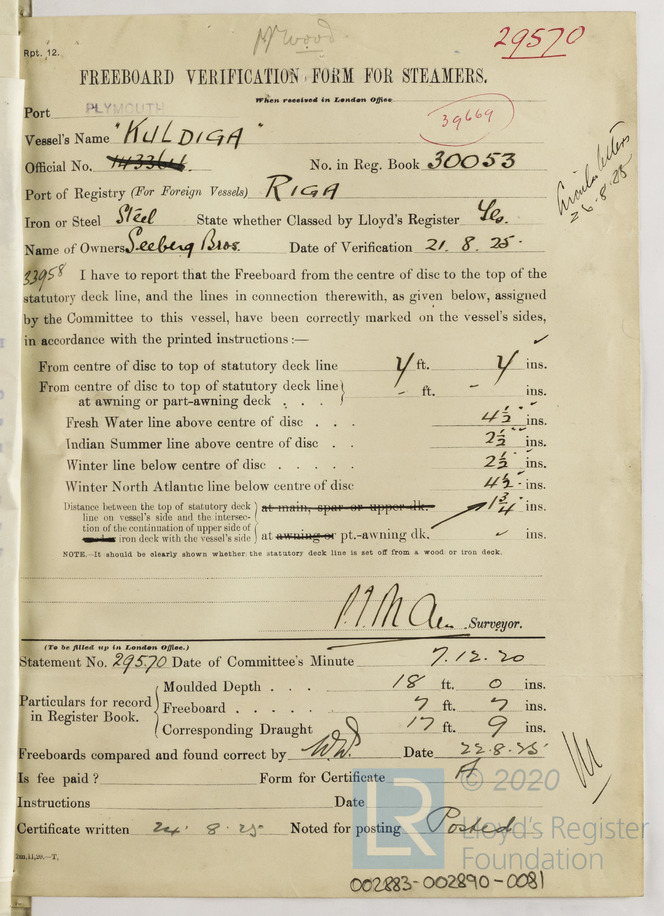 Rpt. 12.
pp wood.
29570
FREEBOARD VERIFICATION FORM FOR STEAMERS.
When received in London Office
Port PLYMOUTH
39669
Vessel's Name "KULDIGA"
Official No. 143366. No. in Reg. Book 30053
Port of Registry (For Foreign Vessels) RIGA
Circular letters
26.8.25
Iron or Steel Steel State whether Classed by Lloyd's Register Yes.
Name of Owners Seeberg Bros. Date of Verification 21. 8. 25.
33958 I have to report that the Freeboard from the centre of disc to the top of the
statutory deck line, and the lines in connection therewith, as given below, assigned
by the Committee to this vessel, have been correctly marked on the vessel's sides,
in accordance with the printed instructions :—
From centre of disc to top of statutory deck line ft. ins.
From centre of disc to top of statutory deck line
at awning or part-awning deck . . . - ft. - ins.
Fresh Water line above centre of disc . . . 4½ ins.
Indian Summer line above centre of disc . . 2½ ins.
Winter line below centre of disc . . . . . 2½ ins.
Winter North Atlantic line below centre of disc 4½ ins.
Distance between the top of statutory deck
line on vessel's side and the intersec-
tion of the continuation of upper side of
iron deck with the vessel's side
at main, spar or upper dk. 1¾ ins.
at awning or pt.-awning dk. ins.
NOTE.—It should be clearly shown whether the statutory deck line is set off from a wood or iron deck.
Surveyor.
(To be filled up in London Office.)
Statement No. 29570 Date of Committee's Minute 7.12.20
Particulars for record
in Register Book.
Moulded Depth . . . 18 ft. 0 ins.
Freeboard . . . . . ft. ins.
Corresponding Draught 17 ft. 9 ins.
Freeboards compared and found correct by Date 22.8.25
Is fee paid ? Form for Certificate A
Instructions Date
Certificate written 24. 8. 25 Noted for posting Posted
2m,11,20.—T.
LR © 2020
Lloyd's Register
Foundation
002883-002890-0081